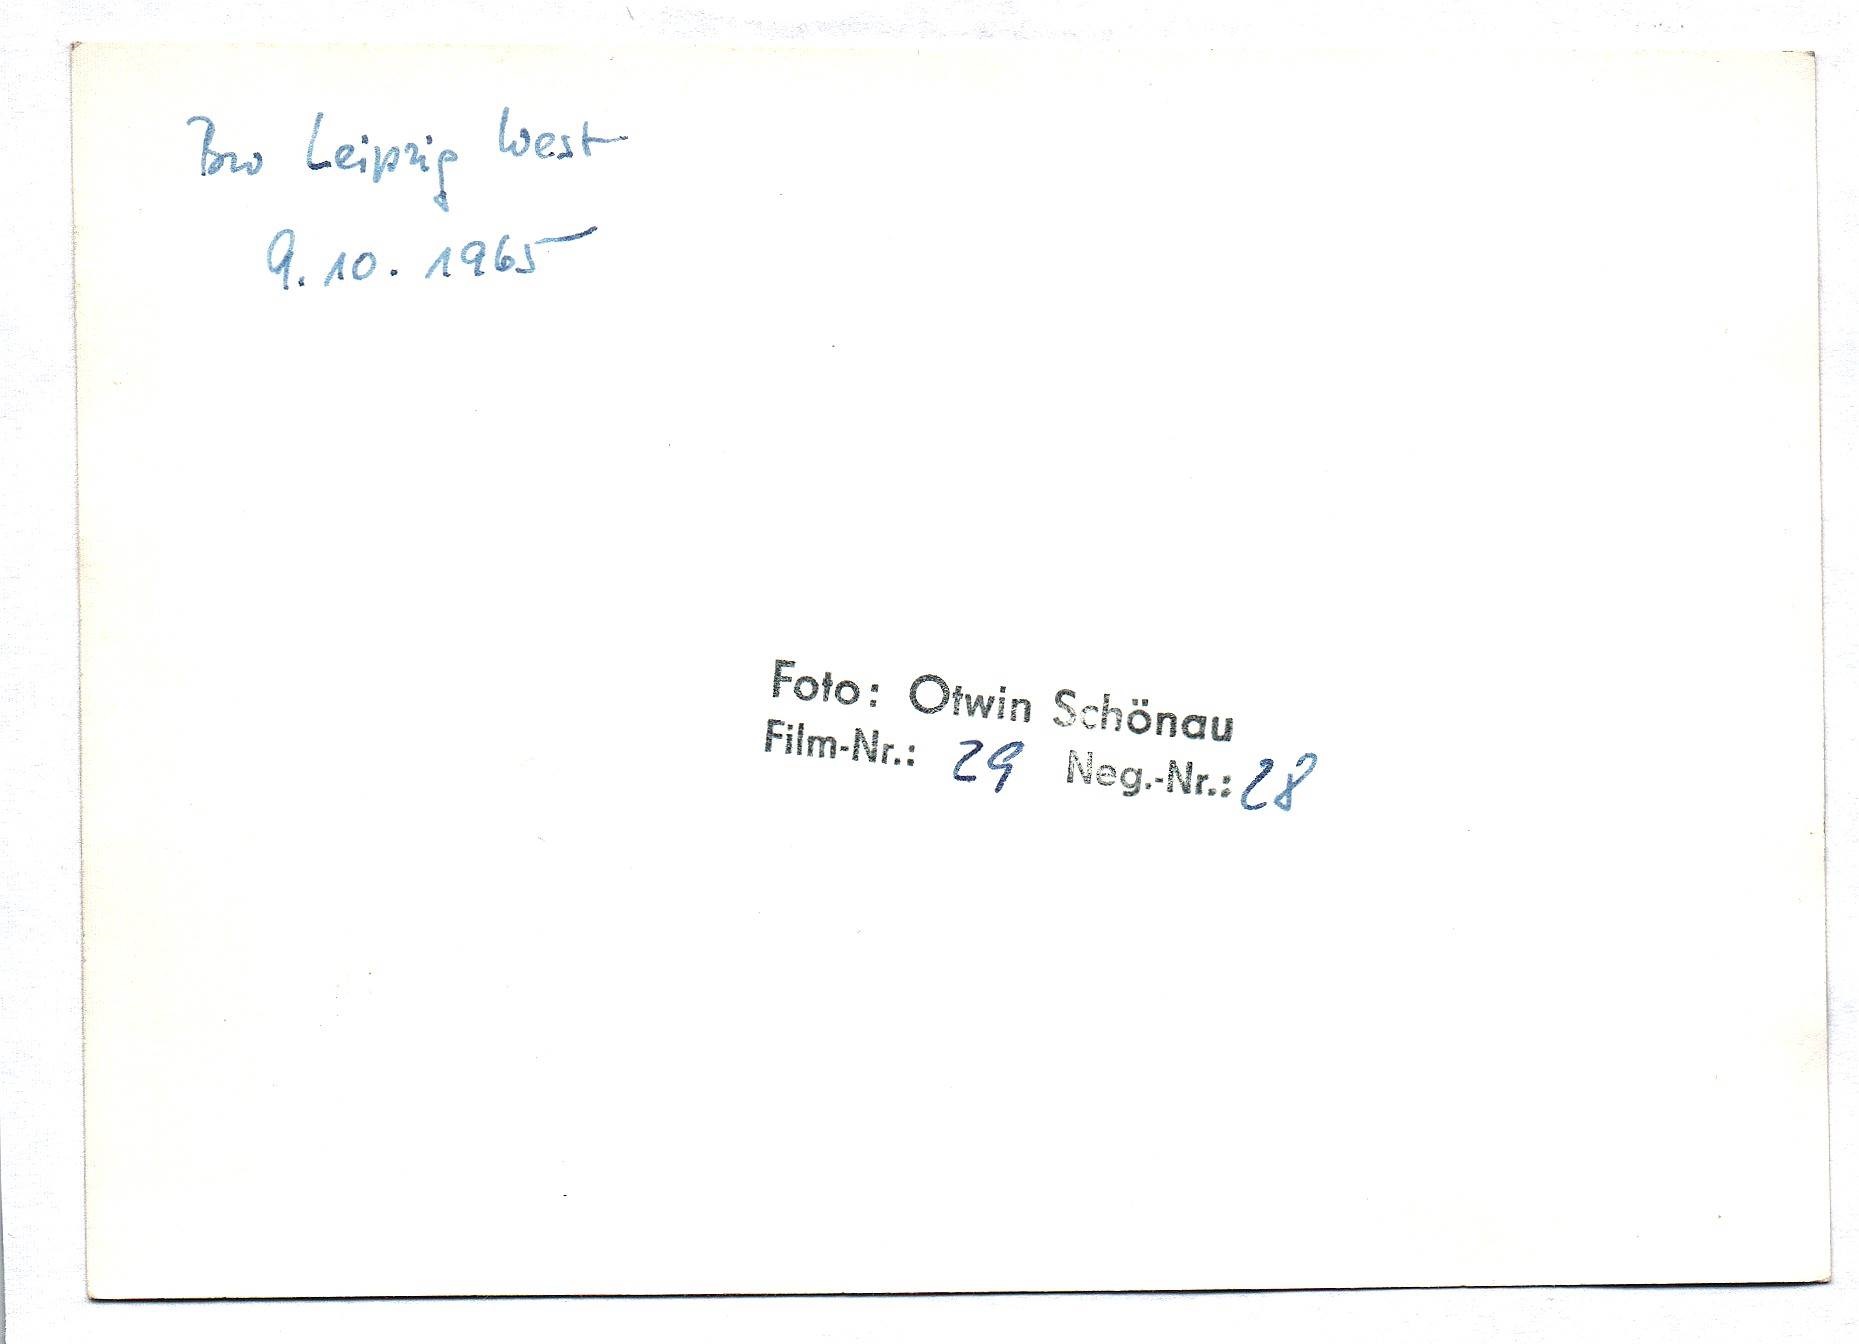 Bw Leipzig West
9.10.1965
Foto: Otwin Schönau
Film-Nr.: 29 Neg.-Nr.: 28